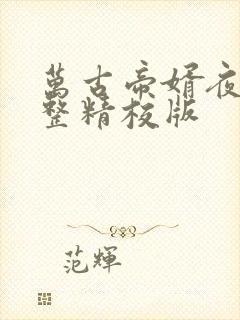 萬古帝婿夜
整精校版
范輝